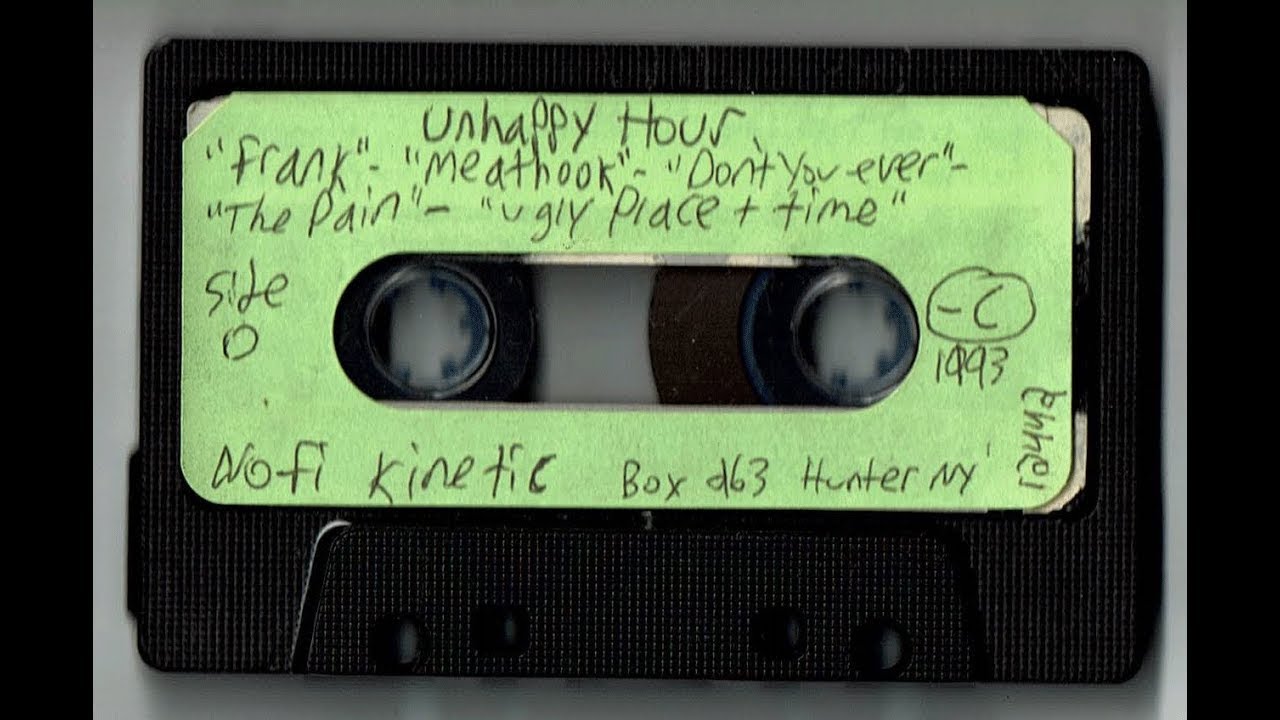 Unhappy Hour
"Frank"- "Meathook"- "Don't You ever"-
"The Pain"- "Ugly Place + time"
Side
0
-C
1993
Nofi Kinetic Box d63 Hunter NY
12442